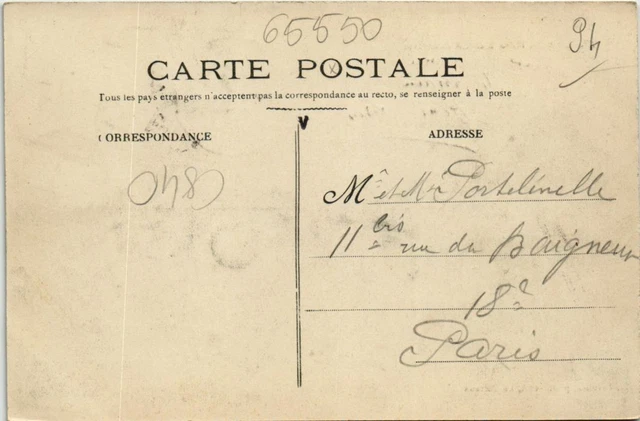 65550
94
CARTE POSTALE
Tous les pays étrangers n'acceptent pas la correspondance au recto, se renseigner à la poste
CORRESPONDANCE
ADRESSE
0480
Mr et Me
11 bis rue du Baigneur
18e
Paris